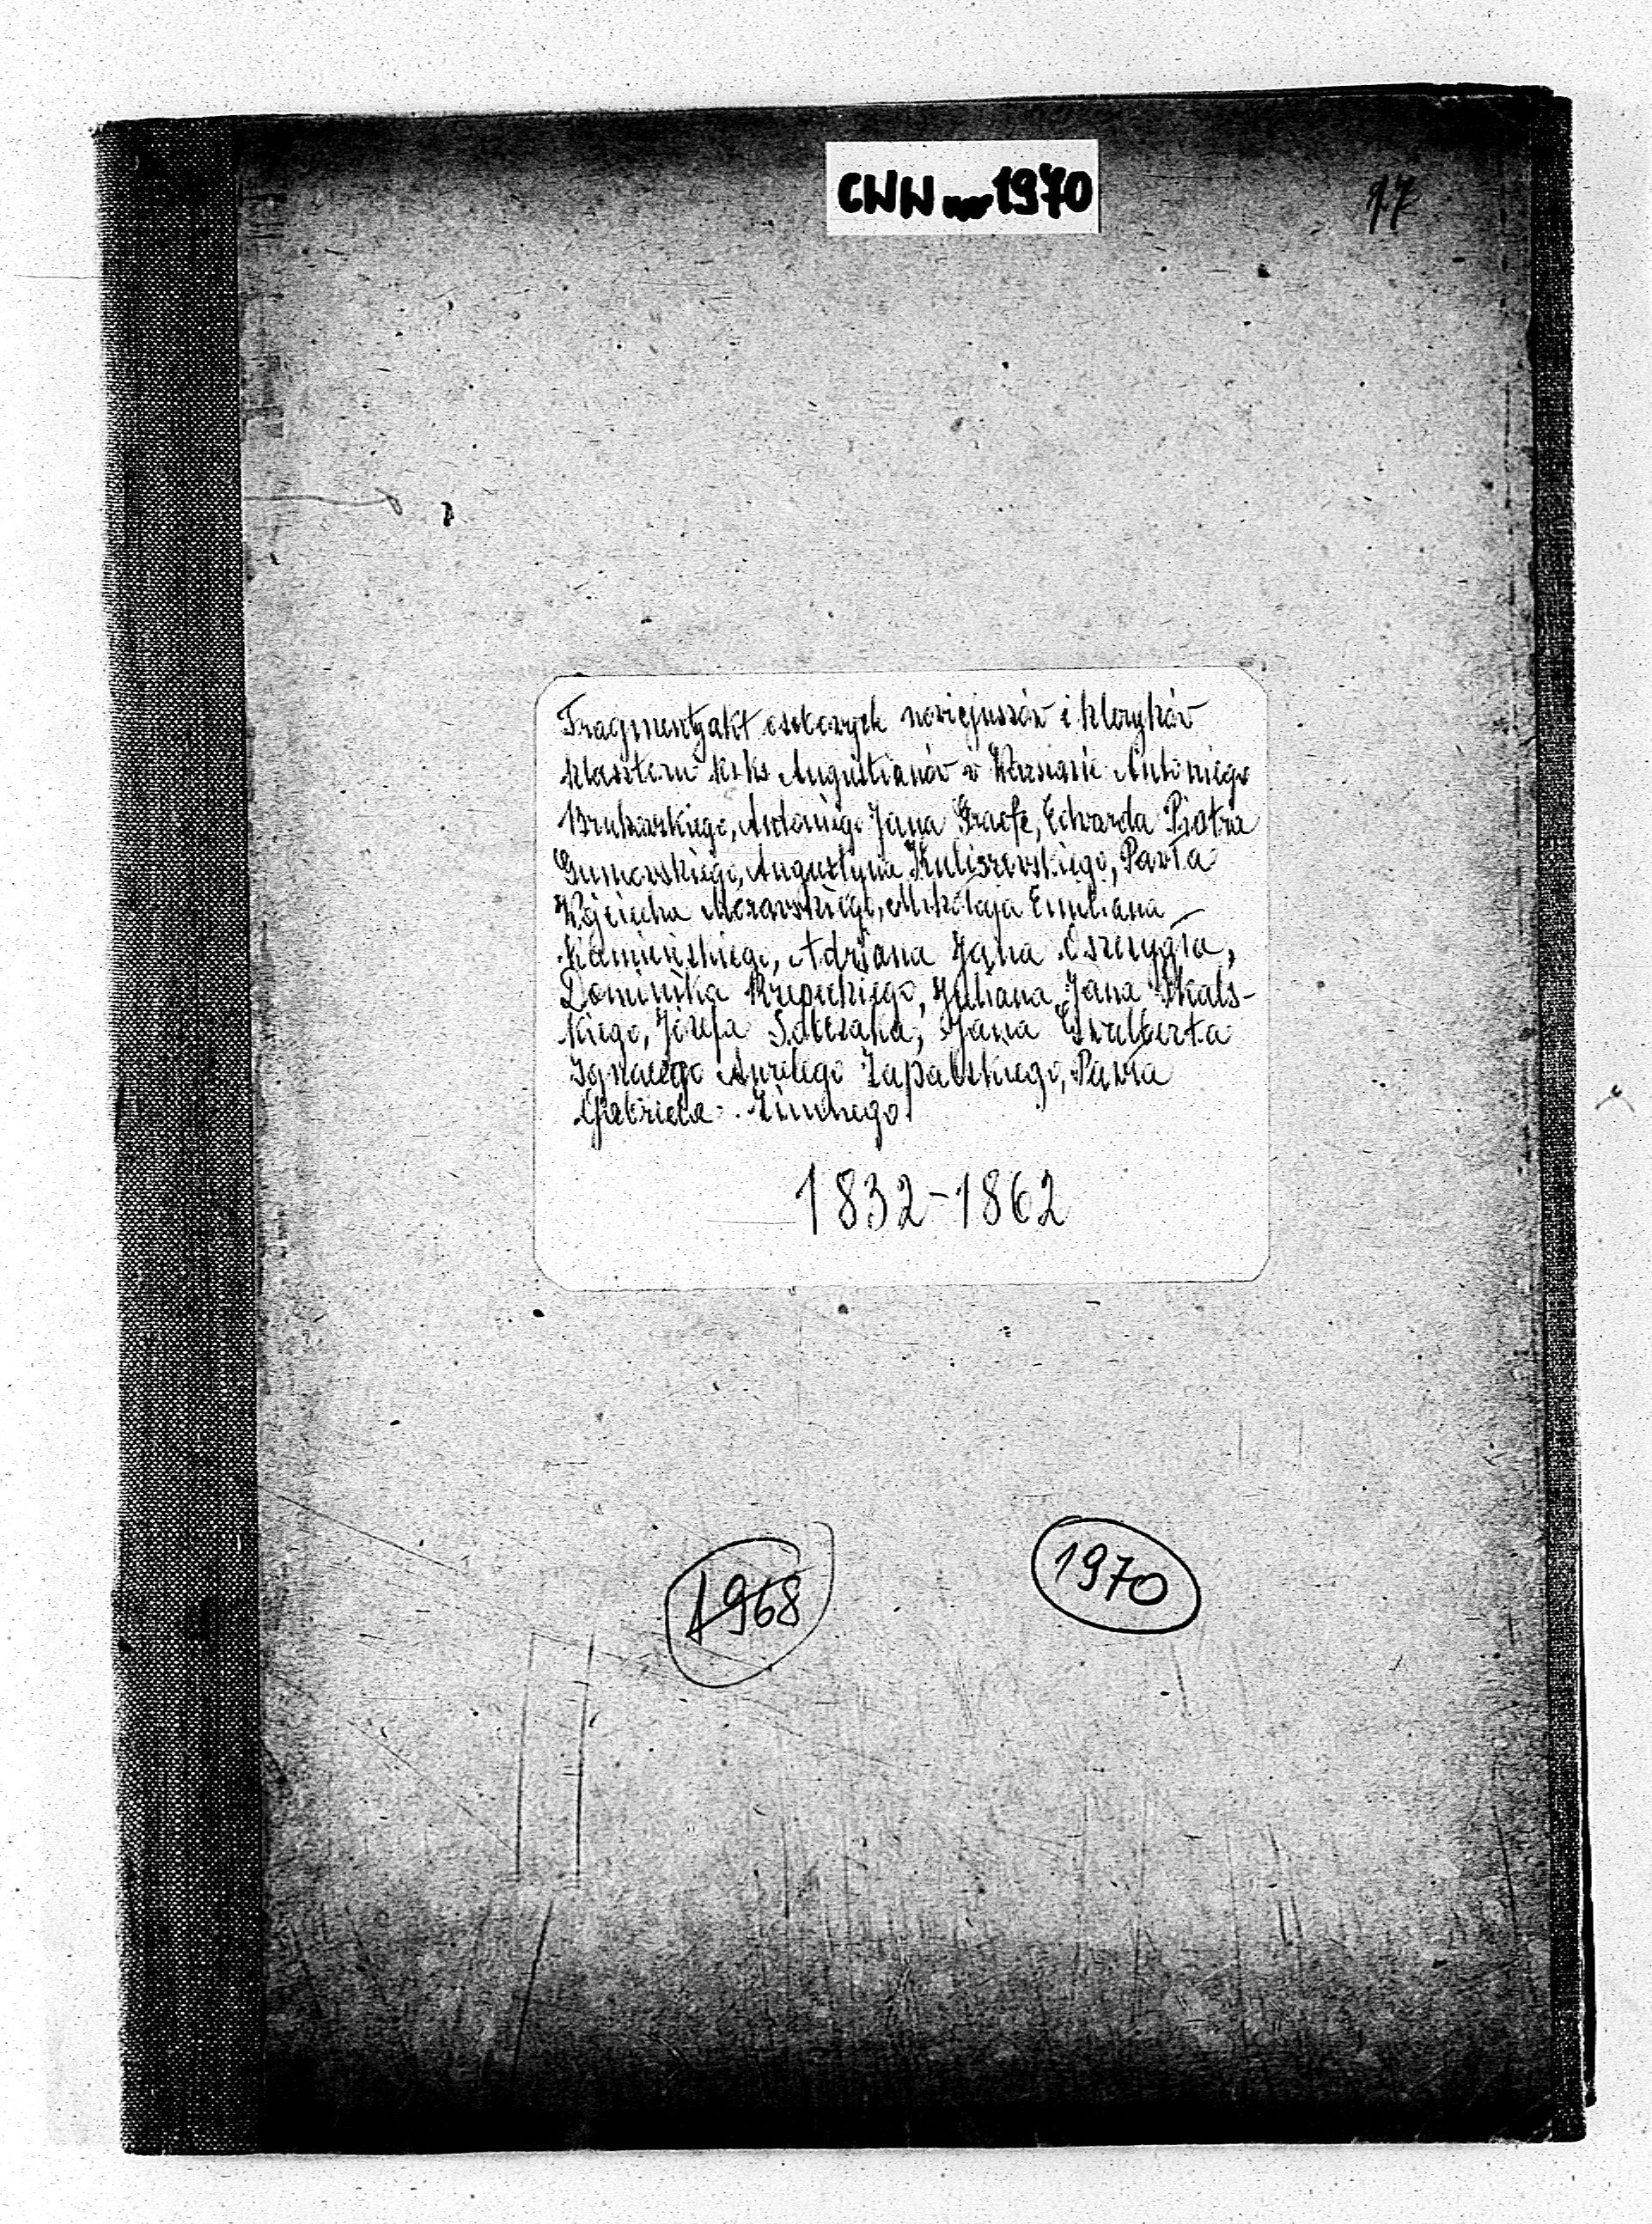 CWW nr 1970
17
Fragmenty akt osobowych nowicjuszów i kleryków
klasztoru ks. ks. Augustianów w Warszawie Antoniego
Brukarskiego, Antoniego Jana Graefe, Edwarda Piotra
Gumowskiego, Augustyna Kuliszewskiego, Pawła
Wojciecha Morawskiego, Mikołaja Emiliana
Kamieńskiego, Adriana Jana Oszczygła,
Dominika Rzepeckiego, Juliana Jana Skals-
kiego, Józefa Sobczaka, Jana Gwalberta
Ignacego Aurelego Zapalskiego, Pawła
Gabriela Zimnego
1832-1862
1968
1970